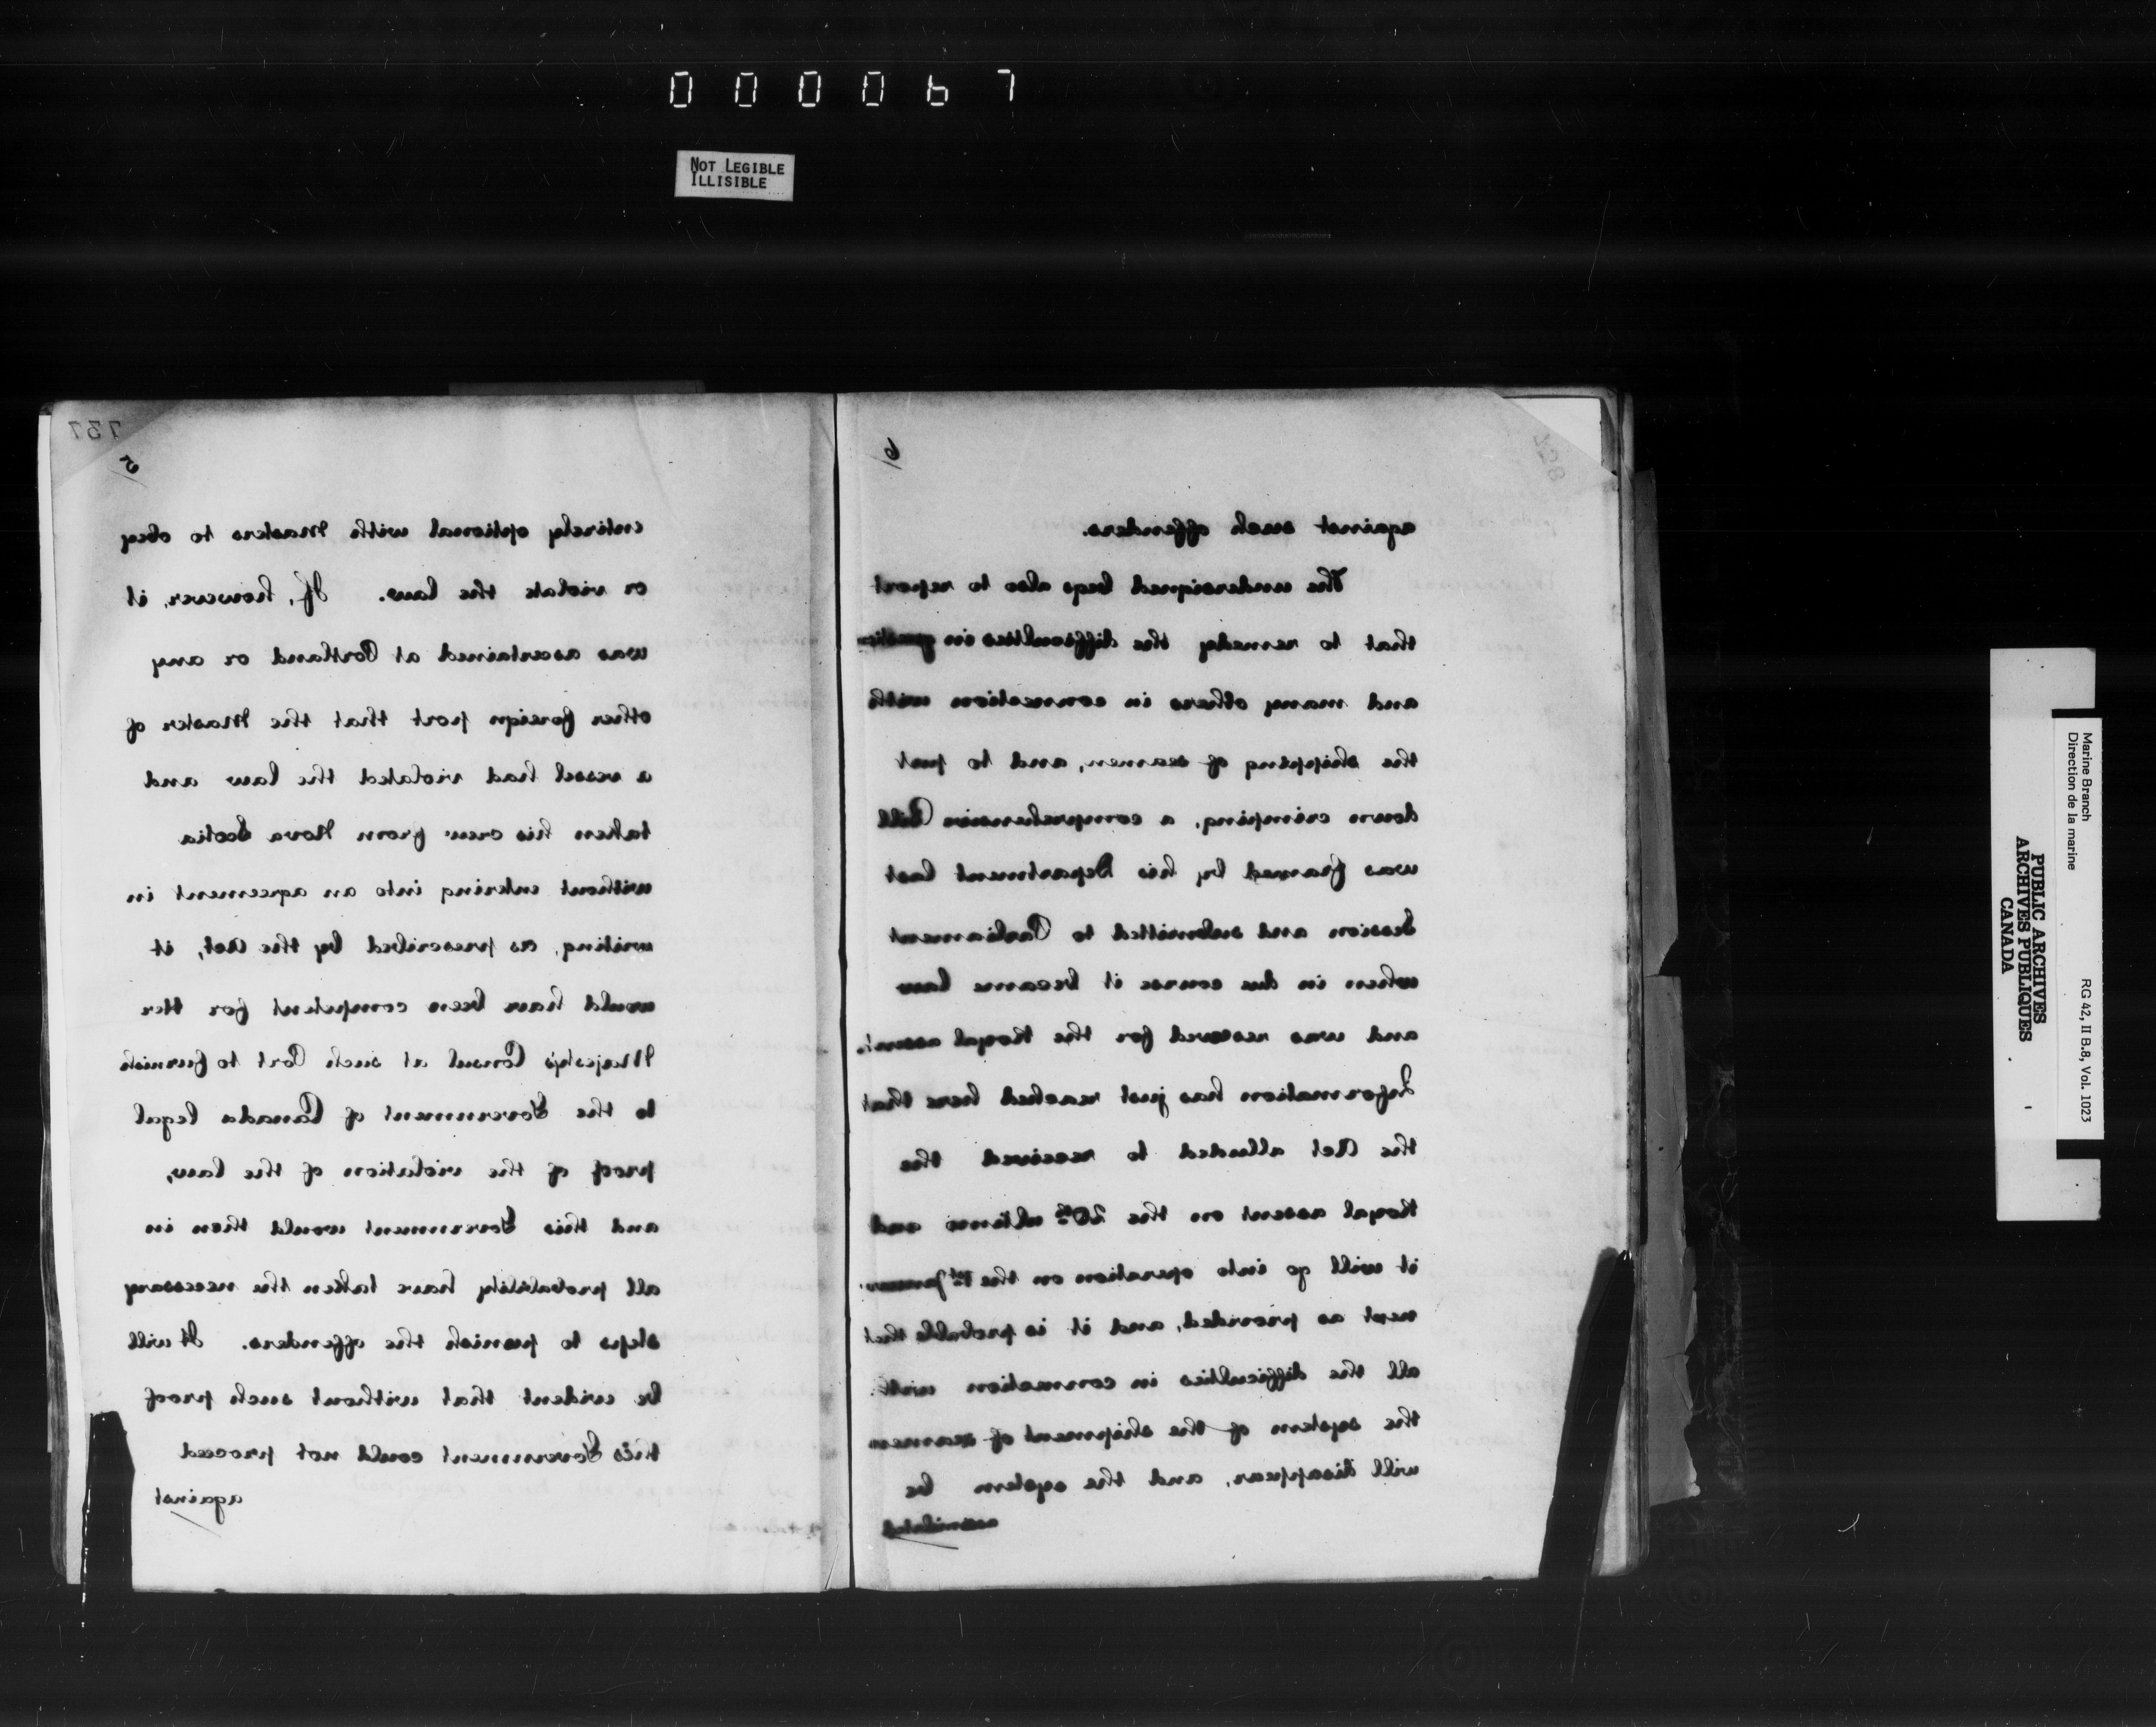 000067
NOT LEGIBLE
ILLISIBLE
737
5
entirely optional with Masters to obey
or violate the law. If, however, it
was ascertained at Portland or any
other foreign port that the Master of
a vessel had violated the law and
taken his crew from Nova Scotia
without entering into an agreement in
writing, as prescribed by the Act, it
would have been competent for Her
Majesty's Consul at such Port to furnish
to the Government of Canada legal
proof of the violation of the law,
and this Government would then in
all probability have taken the necessary
steps to punish the offenders. It will
be evident that without such proof
this Government could not proceed
against
6
against such offenders.
The undersigned begs also to report
that to remedy the difficulties in question
and many others in connection with
the shipping of seamen, and to put
down crimping, a comprehensive Bill
was framed by his Department last
Session and submitted to Parliament
when in due course it became law
and was reserved for the Royal assent.
Information has just reached here that
the Act alluded to received the
Royal assent on the 20th ultimo and
it will go into operation on the 1st January
next as provided, and it is probable that
all the difficulties in connection with
the system of the shipment of seamen
will disappear, and the system be
assimilated
Marine Branch
Direction de la marine
RG 42, II B.8, Vol. 1023
PUBLIC ARCHIVES
ARCHIVES PUBLIQUES
CANADA